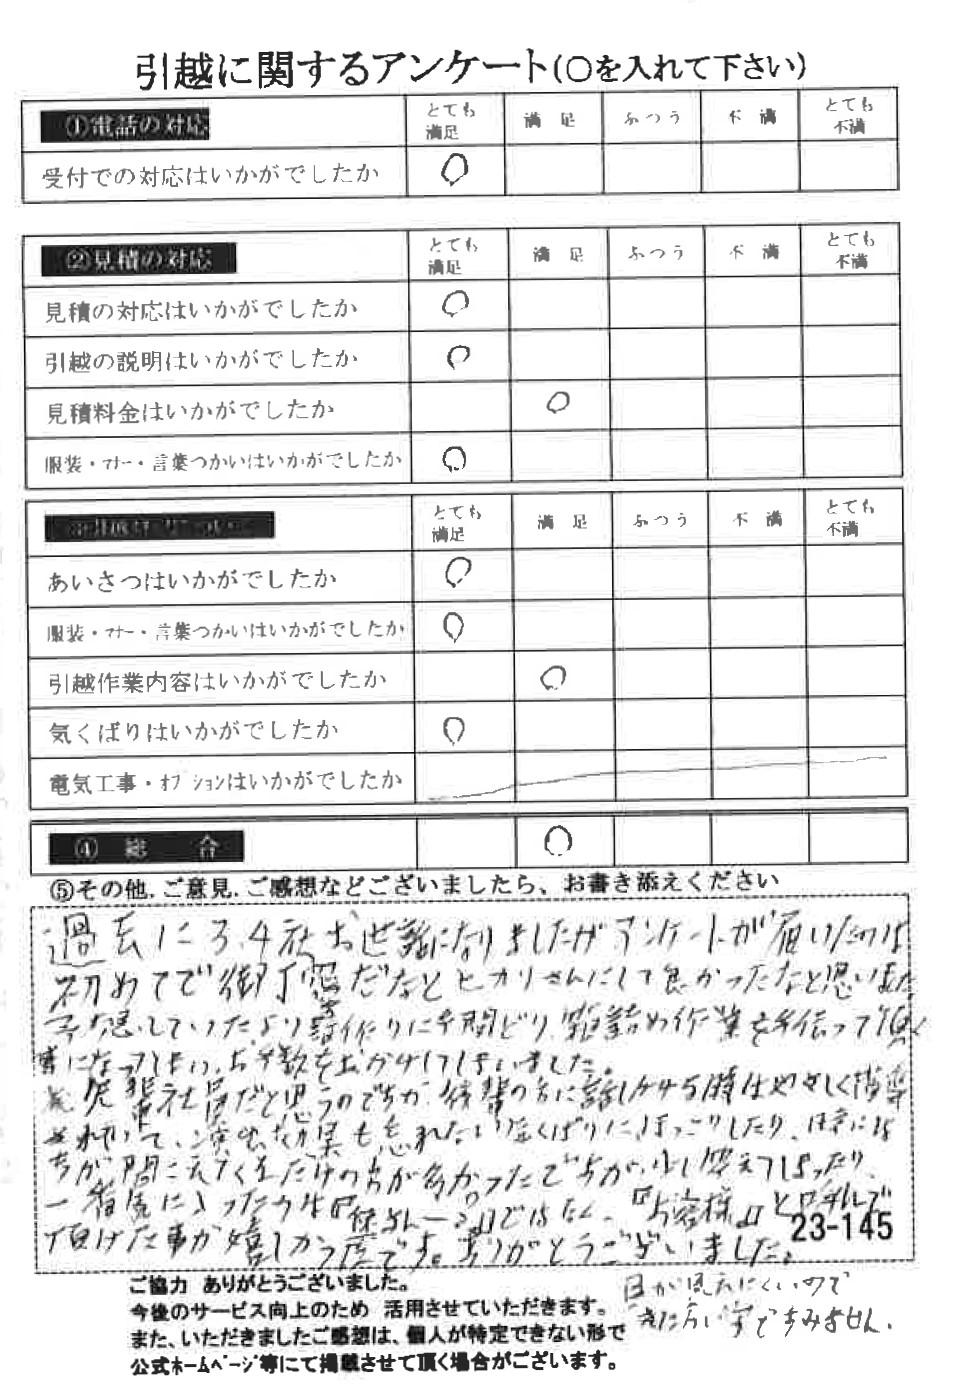 引越に関するアンケート(○を入れて下さい)
①電話の対応 とても満足 満足 ふつう 不満 とても不満
受付での対応はいかがでしたか ○
②見積の対応 とても満足 満足 ふつう 不満 とても不満
見積の対応はいかがでしたか ○
引越の説明はいかがでしたか ○
見積料金はいかがでしたか ○
服装・マナー・言葉つかいはいかがでしたか ○
とても満足 満足 ふつう 不満 とても不満
あいさつはいかがでしたか ○
服装・マナー・言葉つかいはいかがでしたか ○
引越作業内容はいかがでしたか ○
気くばりはいかがでしたか ○
電気工事・オプションはいかがでしたか
④ 総 合 ○
⑤その他、ご意見、ご感想などございましたら、お書き添えください
過去に3、4社お世話になりましたがアンケートが届いたのは
初めてで御丁寧だなとヒカリさんにして良かったなと思いました
していたより 作りに手間どり、箱詰め作業を手伝って頂く
事になってしまい、お手数をおかけしてしまいました。
社員だと思うのですが、後輩の方に話しかける時はやさしく指導
されていて、 も忘れない気くばりに、ほっこりしたり、
が多かったですが、少し答えてしまったり、
一番気に入ったのは ではなく、『お客様』と呼んで
頂けた事が嬉しかっ です。ありがとうございました。
23-145
ご協力 ありがとうございました。
今後のサービス向上のため 活用させていただきます。
また、いただきましたご感想は、個人が特定できない形で
公式ホームページ等にて掲載させて頂く場合がございます。
目が見えにくいので
字ですみません。